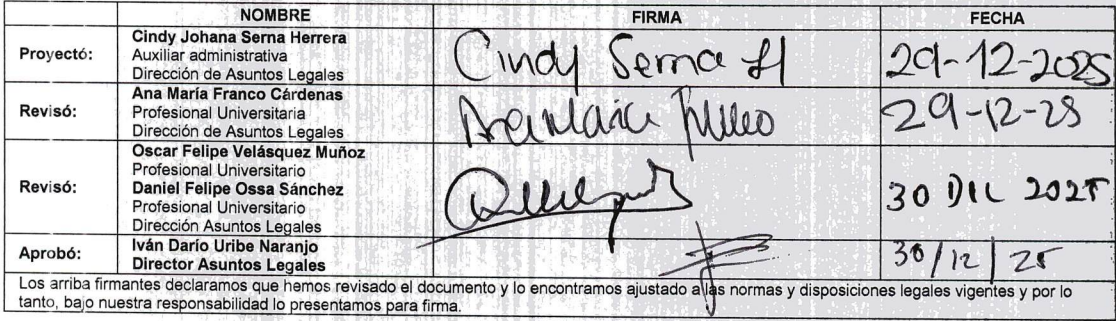 NOMBRE FIRMA FECHA
Proyectó: Cindy Johana Serna Herrera
Auxiliar administrativa
Dirección de Asuntos Legales
Cindy Serna H 29-12-2025
Revisó: Ana María Franco Cárdenas
Profesional Universitaria
Dirección de Asuntos Legales
Ana María Franco 29-12-25
Revisó: Oscar Felipe Velásquez Muñoz
Profesional Universitario
Daniel Felipe Ossa Sánchez
Profesional Universitario
Dirección Asuntos Legales
30 DIC 2025
Aprobó: Iván Darío Uribe Naranjo
Director Asuntos Legales
30/12/25
Los arriba firmantes declaramos que hemos revisado el documento y lo encontramos ajustado a las normas y disposiciones legales vigentes y por lo
tanto, bajo nuestra responsabilidad lo presentamos para firma.